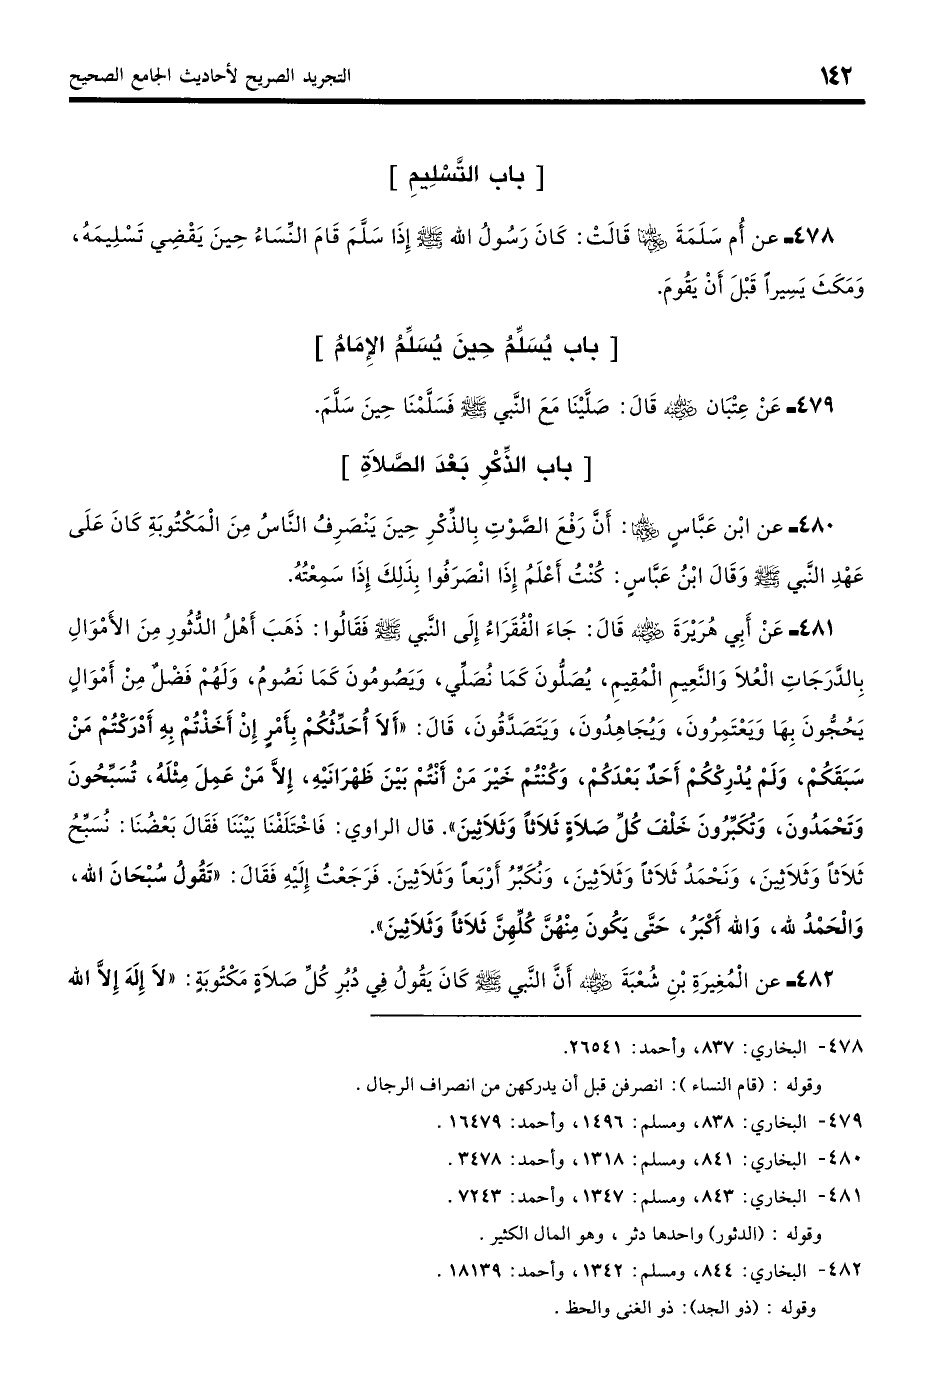 ١٤٢ التجريد الصريح لأحاديث الجامع الصحيح
[ باب التَّسْلِيمِ ]
٤٧٨ـ عن أُم سَلَمَةَ رضي الله عنها قَالَتْ: كَانَ رَسُولُ الله ﷺ إِذَا سَلَّمَ قَامَ النِّسَاءُ حِينَ يَقْضِي تَسْلِيمَهُ،
وَمَكَثَ يَسِيراً قَبْلَ أَنْ يَقُومَ.
[ باب يُسَلِّمُ حِينَ يُسَلِّمُ الإِمَامُ ]
٤٧٩ـ عَنْ عِتْبَان رضي الله عنه قَالَ: صَلَّيْنَا مَعَ النَّبي ﷺ فَسَلَّمْنَا حِينَ سَلَّمَ.
[ باب الذِّكْرِ بَعْدَ الصَّلاَةِ ]
٤٨٠ـ عن ابْن عَبَّاسٍ رضي الله عنهما: أَنَّ رَفْعَ الصَّوْتِ بِالذِّكْرِ حِينَ يَنْصَرِفُ النَّاسُ مِنَ الْمَكْتُوبَةِ كَانَ عَلَى
عَهْدِ النَّبي ﷺ وَقَالَ ابْنُ عَبَّاسٍ: كُنْتُ أَعْلَمُ إِذَا انْصَرَفُوا بِذَلِكَ إِذَا سَمِعْتُهُ.
٤٨١ـ عَنْ أَبِي هُرَيْرَةَ رضي الله عنه قَالَ: جَاءَ الْفُقَرَاءُ إِلَى النَّبي ﷺ فَقَالُوا: ذَهَبَ أَهْلُ الدُّثُورِ مِنَ الأَمْوَالِ
بِالدَّرَجَاتِ الْعُلاَ وَالنَّعِيمِ الْمُقِيمِ، يُصَلُّونَ كَمَا نُصَلِّي، وَيَصُومُونَ كَمَا نَصُومُ، وَلَهُمْ فَضْلٌ مِنْ أَمْوَالٍ
يَحُجُّونَ بِهَا وَيَعْتَمِرُونَ، وَيُجَاهِدُونَ، وَيَتَصَدَّقُونَ، قَالَ: «أَلاَ أُحَدِّثُكُمْ بِأَمْرٍ إِنْ أَخَذْتُمْ بِهِ أَدْرَكْتُمْ مَنْ
سَبَقَكُمْ، وَلَمْ يُدْرِكْكُمْ أَحَدٌ بَعْدَكُمْ، وَكُنْتُمْ خَيْرَ مَنْ أَنْتُمْ بَيْنَ ظَهْرَانَيْهِ، إِلاَّ مَنْ عَمِلَ مِثْلَهُ، تُسَبِّحُونَ
وَتَحْمَدُونَ، وَتُكَبِّرُونَ خَلْفَ كُلِّ صَلاَةٍ ثَلاَثاً وَثَلاَثِينَ». قال الراوي: فَاخْتَلَفْنَا بَيْنَنَا فَقَالَ بَعْضُنَا: نُسَبِّحُ
ثَلاَثاً وَثَلاَثِينَ، وَنَحْمَدُ ثَلاَثاً وَثَلاَثِينَ، وَنُكَبِّرُ أَرْبَعاً وَثَلاَثِينَ. فَرَجَعْتُ إِلَيْهِ فَقَالَ: «تَقُولُ سُبْحَانَ الله،
وَالْحَمْدُ لله، وَالله أَكْبَرُ، حَتَّى يَكُونَ مِنْهُنَّ كُلِّهِنَّ ثَلاَثاً وَثَلاَثِينَ».
٤٨٢ـ عن الْمُغِيرَةِ بْنِ شُعْبَةَ رضي الله عنه أَنَّ النَّبي ﷺ كَانَ يَقُولُ فِي دُبُرِ كُلِّ صَلاَةٍ مَكْتُوبَةٍ: «لاَ إِلَهَ إِلاَّ الله
٤٧٨- البخاري: ٨٣٧، وأحمد: ٢٦٥٤١.
وقوله : (قام النساء ): انصرفن قبل أن يدركهن من انصراف الرجال .
٤٧٩- البخاري: ٨٣٨، ومسلم: ١٤٩٦، وأحمد: ١٦٤٧٩ .
٤٨٠- البخاري: ٨٤١، ومسلم: ١٣١٨، وأحمد: ٣٤٧٨ .
٤٨١- البخاري: ٨٤٣، ومسلم: ١٣٤٧، وأحمد: ٧٢٤٣ .
وقوله : (الدثور) واحدها دثر ، وهو المال الكثير .
٤٨٢- البخاري: ٨٤٤، ومسلم: ١٣٤٢، وأحمد: ١٨١٣٩ .
وقوله : (ذو الجد): ذو الغنى والحظ .